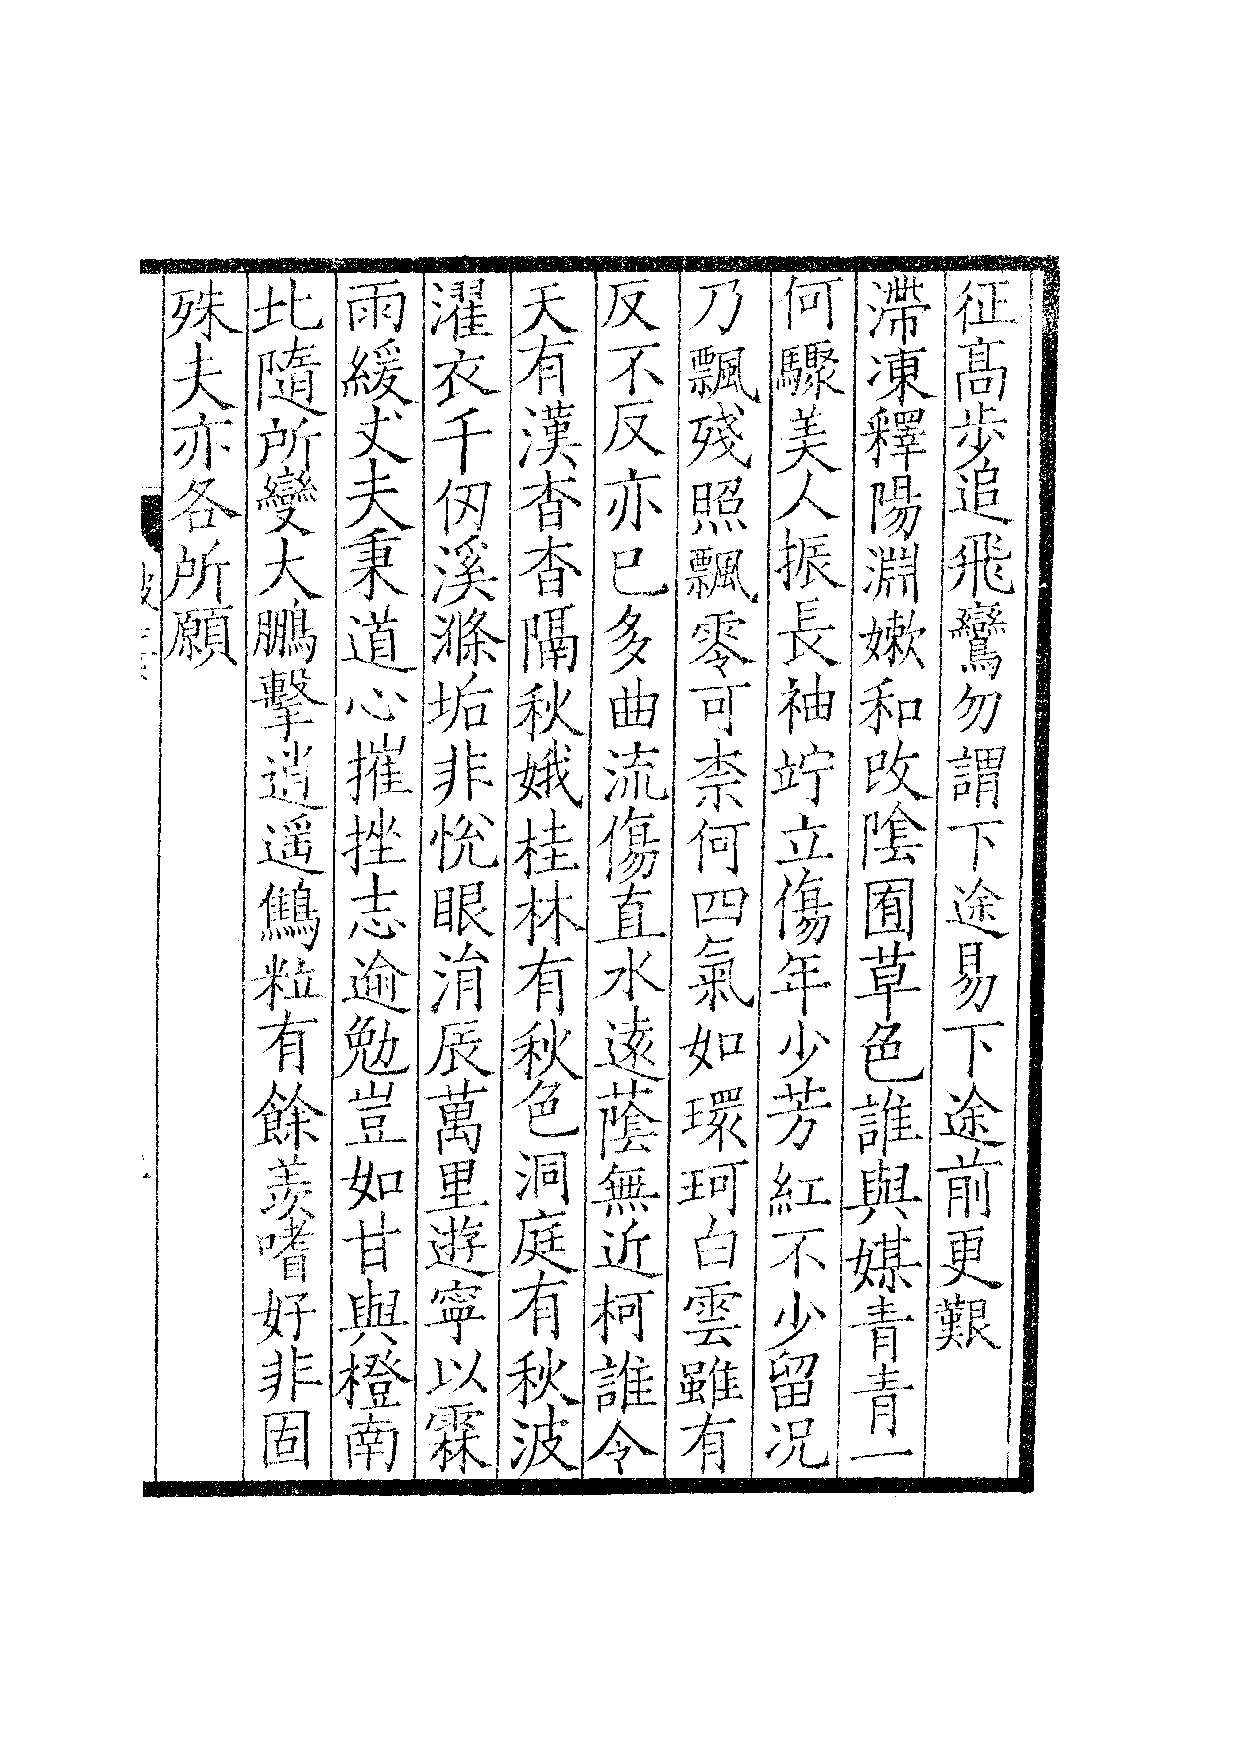 征髙步追飛鸞勿謂下途易下途前更艱
滯凍釋陽淵嫰和改隂囿草色誰與媒青青一
何驟美人振長袖竚立傷年少芳紅不少留况
乃飄殘照飄零可柰何四氣如環珂白雲雖有
反不反亦已多曲流傷直水逺蔭無近柯誰令
天有漢杳杳隔秋娥桂林有秋色洞庭有秋波
濯衣千仞溪滌垢非恱眼消辰萬里遊寧以霖
雨緩丈夫秉道心摧挫志逾勉豈如甘與橙南
北隨所變大鵬擊逍遥鷦粒有餘羡嗜好非固
殊夫亦各所願